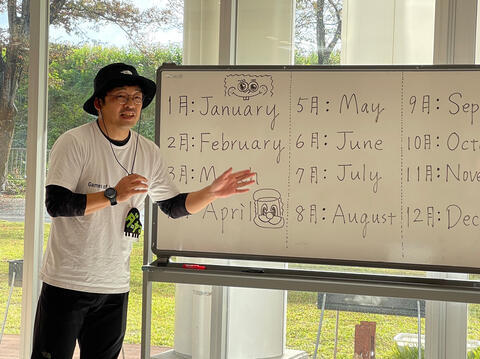 1月:January 5月:May 9月:Sep
2月:February 6月:June 10月:Oct
3月:M 7月:July 11月:Nove
April 8月:August 12月:Dec
Games of